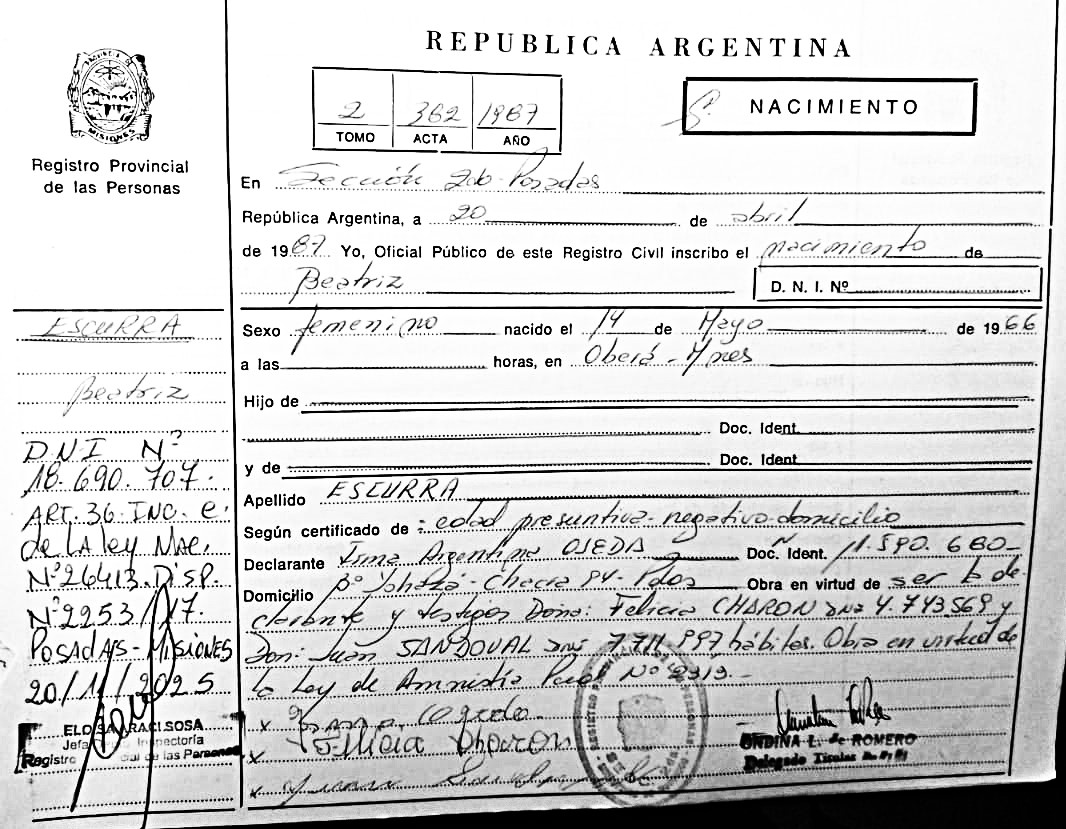 REPUBLICA ARGENTINA
PROVINCIA DE
MISIONES
Registro Provincial
de las Personas
2 362 1987
TOMO ACTA AÑO
NACIMIENTO
En Sección 2da-Posadas
República Argentina, a 20 de abril
de 1987 Yo, Oficial Público de este Registro Civil inscribo el nacimiento de
Beatriz D. N. I. Nº
Sexo femenino nacido el 14 de Mayo de 1966
a las horas, en Oberá-Mnes
Hijo de
Doc. Ident.
y de Doc. Ident.
Apellido ESCURRA
Según certificado de : edad presuntiva-negativo-domicilio
Declarante Irma Argentina OJEDA Doc. Ident. 11.590.680
Domicilio Bº Chacra 94-Pdas Obra en virtud de ser la de-
clarante y testigos Doña: Felicia CHARON DNI 4.743.569 y
Don: Juan SANDOVAL DNI 7.711.997 hábiles. Obra en virtud de
la Ley de Amnistía Nº 2313.-
x
x Felicia Charon
x
ONDINA L. de ROMERO
ESCURRA
Beatriz
D.N.I Nº
18.690.707.
ART. 36. INC. e.
de LA Ley Nac.
Nº 26413. DISP.
Nº 2253/17.
POSADAS-MISIONES
20/11/2025
SOSA
Jefa Inspectoría
Registro de las Personas